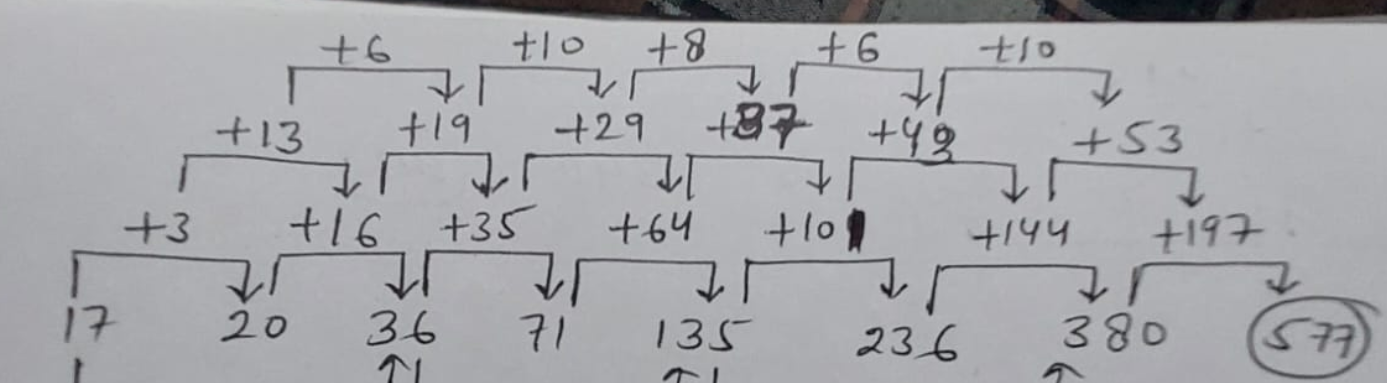 +6 +10 +8 +6 +10
+13 +19 +29 +37 +43 +53
+3 +16 +35 +64 +101 +144 +197
17 20 36 71 135 236 380 577